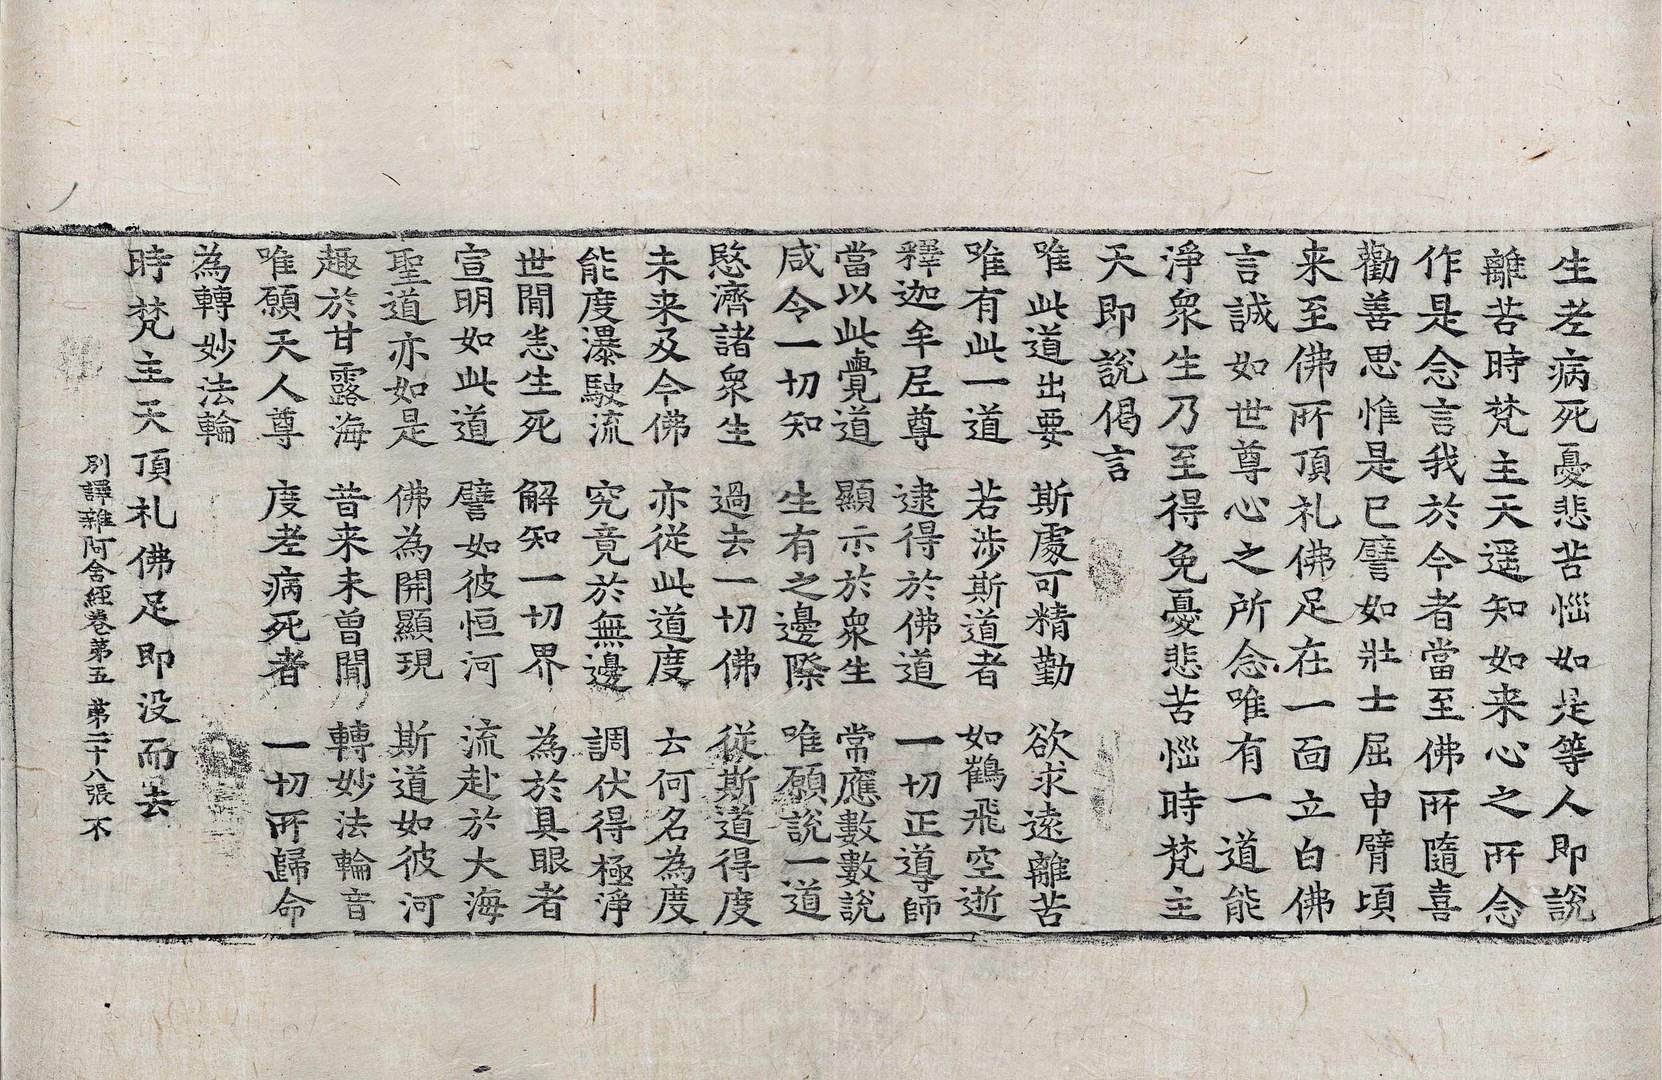 生老病死憂悲苦惱如是等人即說
離苦時梵主天遥知如来心之所念
作是念言我於今者當至佛所隨喜
勸善思惟是已譬如壯士屈申臂頃
来至佛所頂礼佛足在一面立白佛
言誠如世尊心之所念唯有一道能
淨衆生乃至得免憂悲苦惱時梵主
天即說偈言
唯此道出要　斯處可精勤　欲求遠離苦
唯有此一道　若涉斯道者　如鶴飛空逝
釋迦牟尼尊　逮得於佛道　一切正導師
當以此覺道　顯示於衆生　常應數數說
咸令一切知　生有之邊際　唯願說一道
愍濟諸衆生　過去一切佛　從斯道得度
未来及今佛　亦從此道度　云何名為度
能度瀑駛流　究竟於無邊　調伏得極淨
世閒悉生死　解知一切界　為於具眼者
宣明如此道　譬如彼恒河　流赴於大海
聖道亦如是　佛為開顯現　斯道如彼河
趣於甘露海　昔来未曾聞　轉妙法輪音
唯願天人尊　度老病死者　一切所歸命
為轉妙法輪
時梵主天頂礼佛足即没而去
別譯雜阿含經卷第五　第二十八張　不